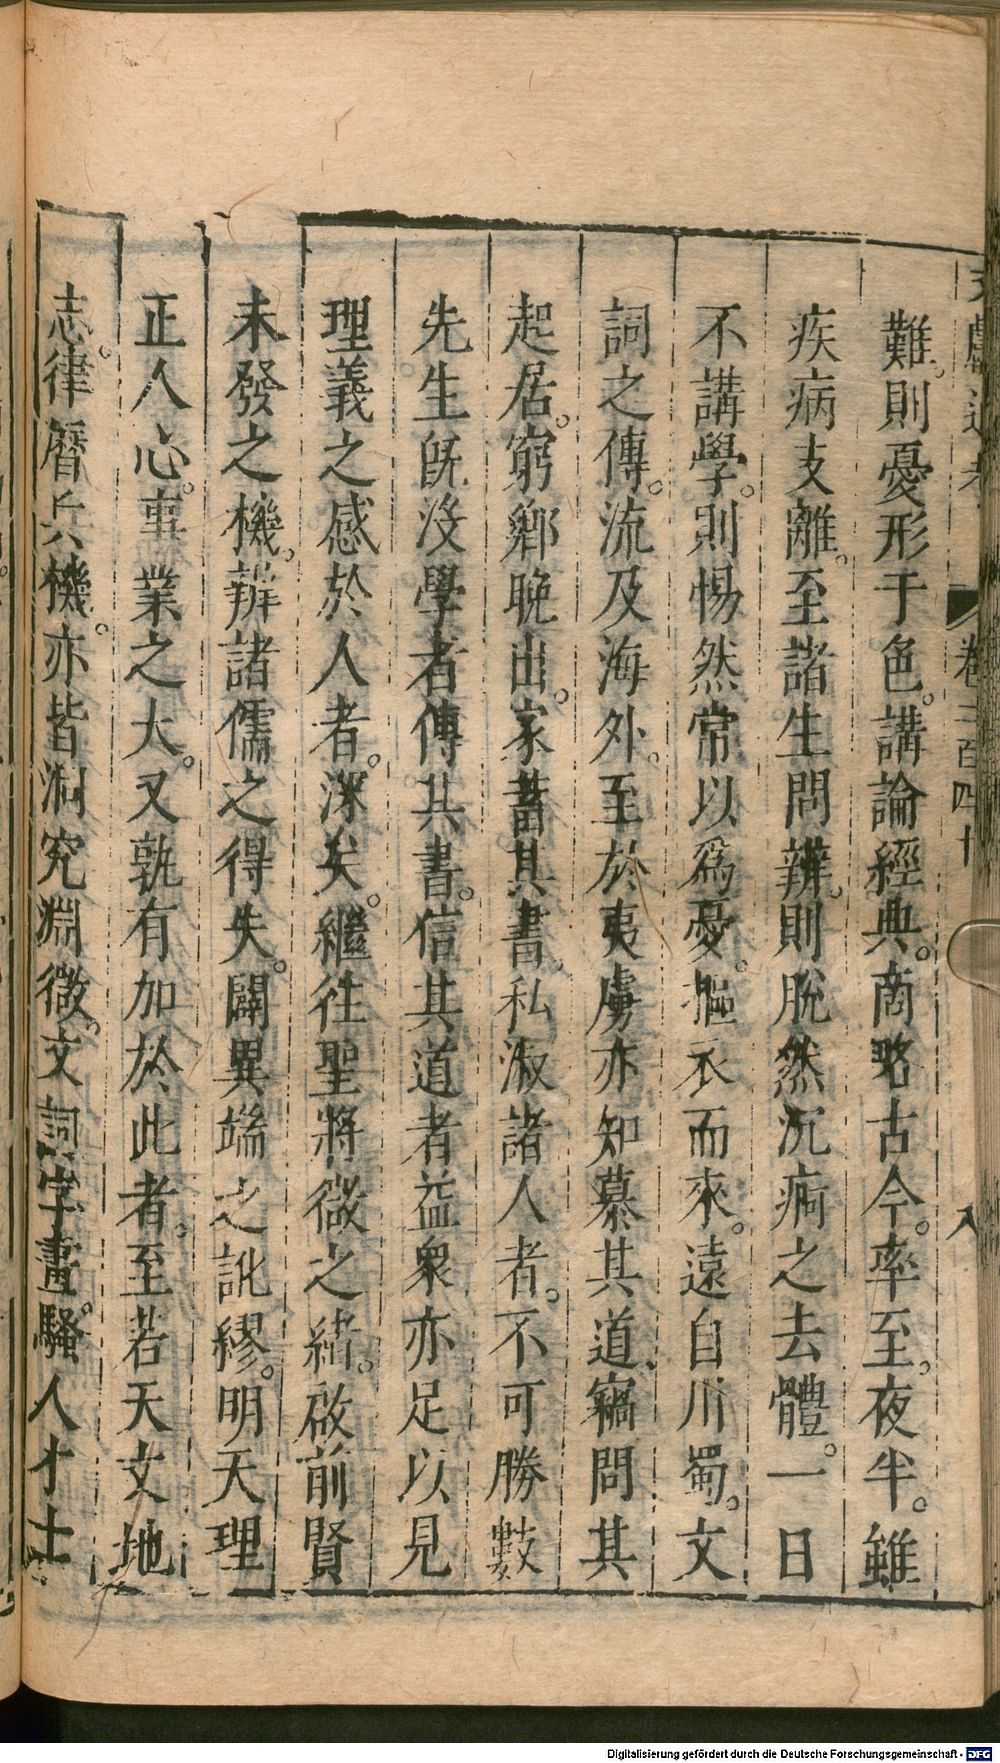 難。則憂形于色。講論經典。商略古今。率至。夜半。雖
疾病支離。至諸生問辨。則脫然沉痾之去體。一日
不講學。則惕然常以爲憂。摳衣而來。遠自川蜀。文
詞之傳。流及海外。至於夷虜亦知慕其道、竊問其
起居。窮鄉晚出。家蓄其書、私淑諸人者。不可勝數
先生旣沒學者傳其書。信其道者益衆亦足以見
理義之感於人者。深矣。繼往聖將微之緒。啟前賢
未發之機。辨諸儒之得失。闢異端之訛繆。明天理
正人心。事業之大。又孰有加於此者。至若天文地
志。律曆兵機。亦皆洞究淵微。文詞字畫。騷人才士
卷三百四十
八
Digitalisierung gefördert durch die Deutsche Forschungsgemeinschaft - DFG